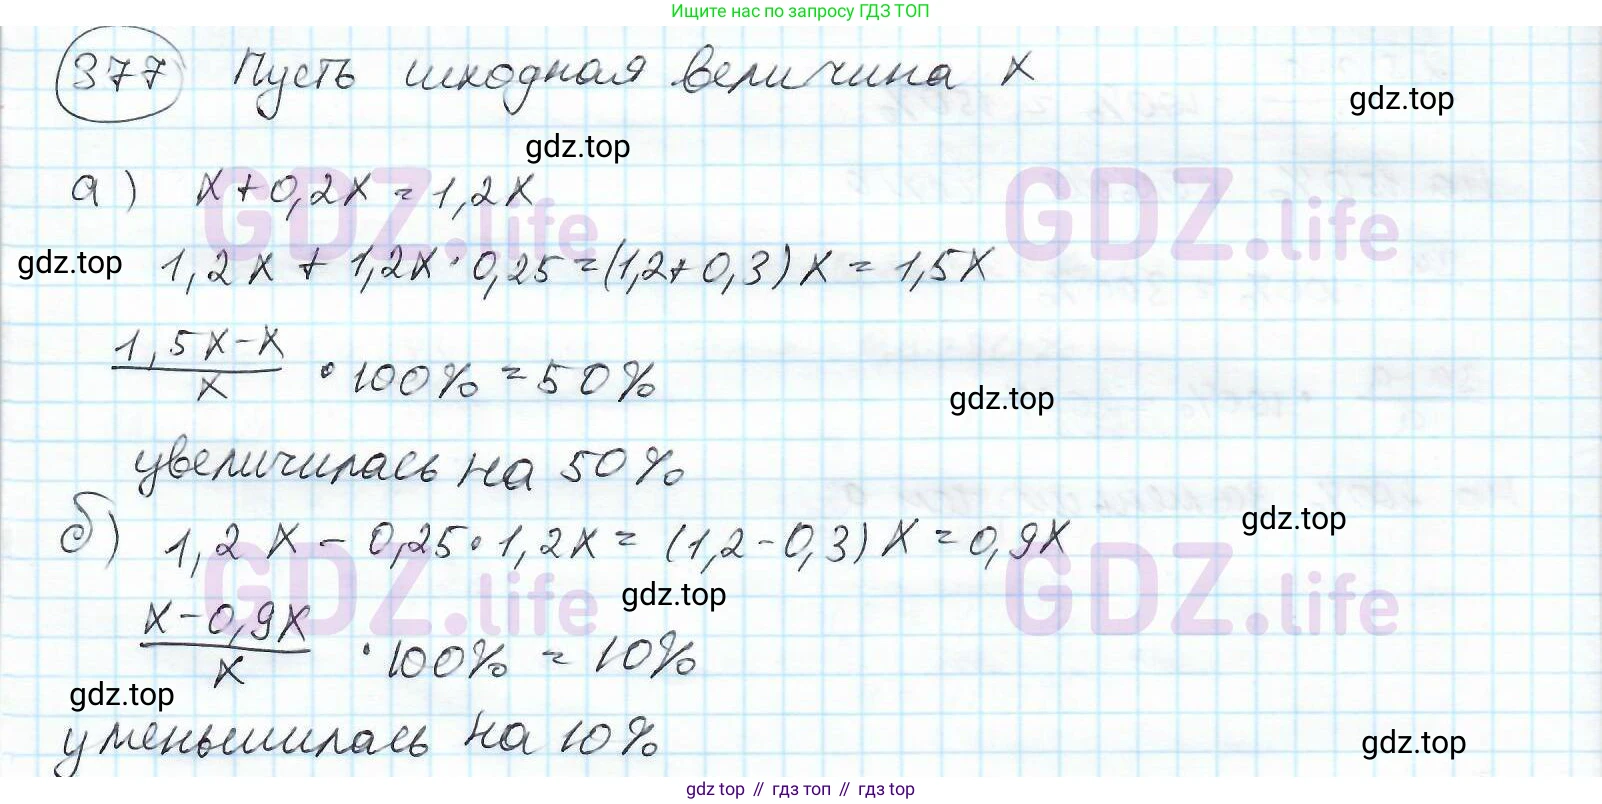 Ищите нас по запросу ГДЗ ТОП
377 Пусть исходная величина x
gdz.top
gdz.top
а) x+0,2x=1,2x
GDZ.life GDZ.life
gdz.top 1,2x + 1,2x · 0,25 = (1,2+0,3) x = 1,5x
(1,5x-x)/x · 100% = 50%
gdz.top
увеличилась на 50%
gdz.top
б) 1,2x - 0,25 · 1,2x = (1,2-0,3) x = 0,9x
GDZ.life GDZ.life
gdz.top
(x-0,9x)/x · 100% = 10%
gdz.top
уменьшилась на 10%
gdz.top
gdz top // гдз топ // гдз top